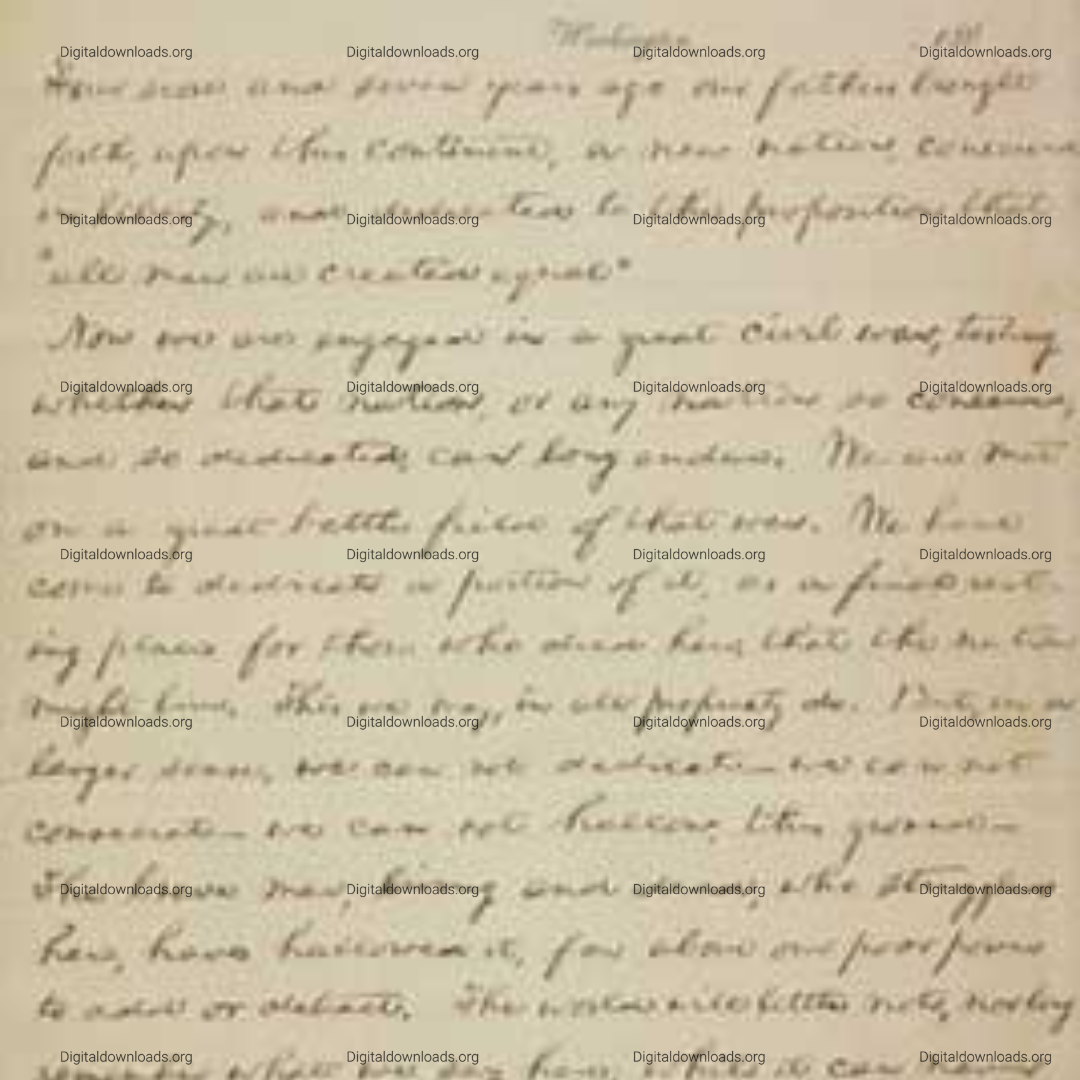 Digitaldownloads.org Digitaldownloads.org Digitaldownloads.org Digitaldownloads.org
Four score and seven years ago our fathers brought
forth, upon this continent, a new nation, conceived
in liberty, and dedicated to the proposition that
Digitaldownloads.org Digitaldownloads.org Digitaldownloads.org Digitaldownloads.org
"all men are created equal"
Now we are engaged in a great civil war, testing
Digitaldownloads.org Digitaldownloads.org Digitaldownloads.org Digitaldownloads.org
whether that nation, or any nation so conceived,
and so dedicated, can long endure. We are met
on a great battle field of that war. We have
Digitaldownloads.org Digitaldownloads.org Digitaldownloads.org Digitaldownloads.org
come to dedicate a portion of it, as a final rest-
ing place for those who died here, that the nation
might live. This we may, in all propriety do. But, in a
Digitaldownloads.org Digitaldownloads.org Digitaldownloads.org Digitaldownloads.org
larger sense, we can not dedicate — we can not
consecrate — we can not hallow, this ground —
The brave men, living and dead, who struggled
Digitaldownloads.org Digitaldownloads.org Digitaldownloads.org Digitaldownloads.org
here, have hallowed it, far above our poor power
to add or detract. The world will little note, nor long
Digitaldownloads.org Digitaldownloads.org Digitaldownloads.org Digitaldownloads.org
remember what we say here, while it can never